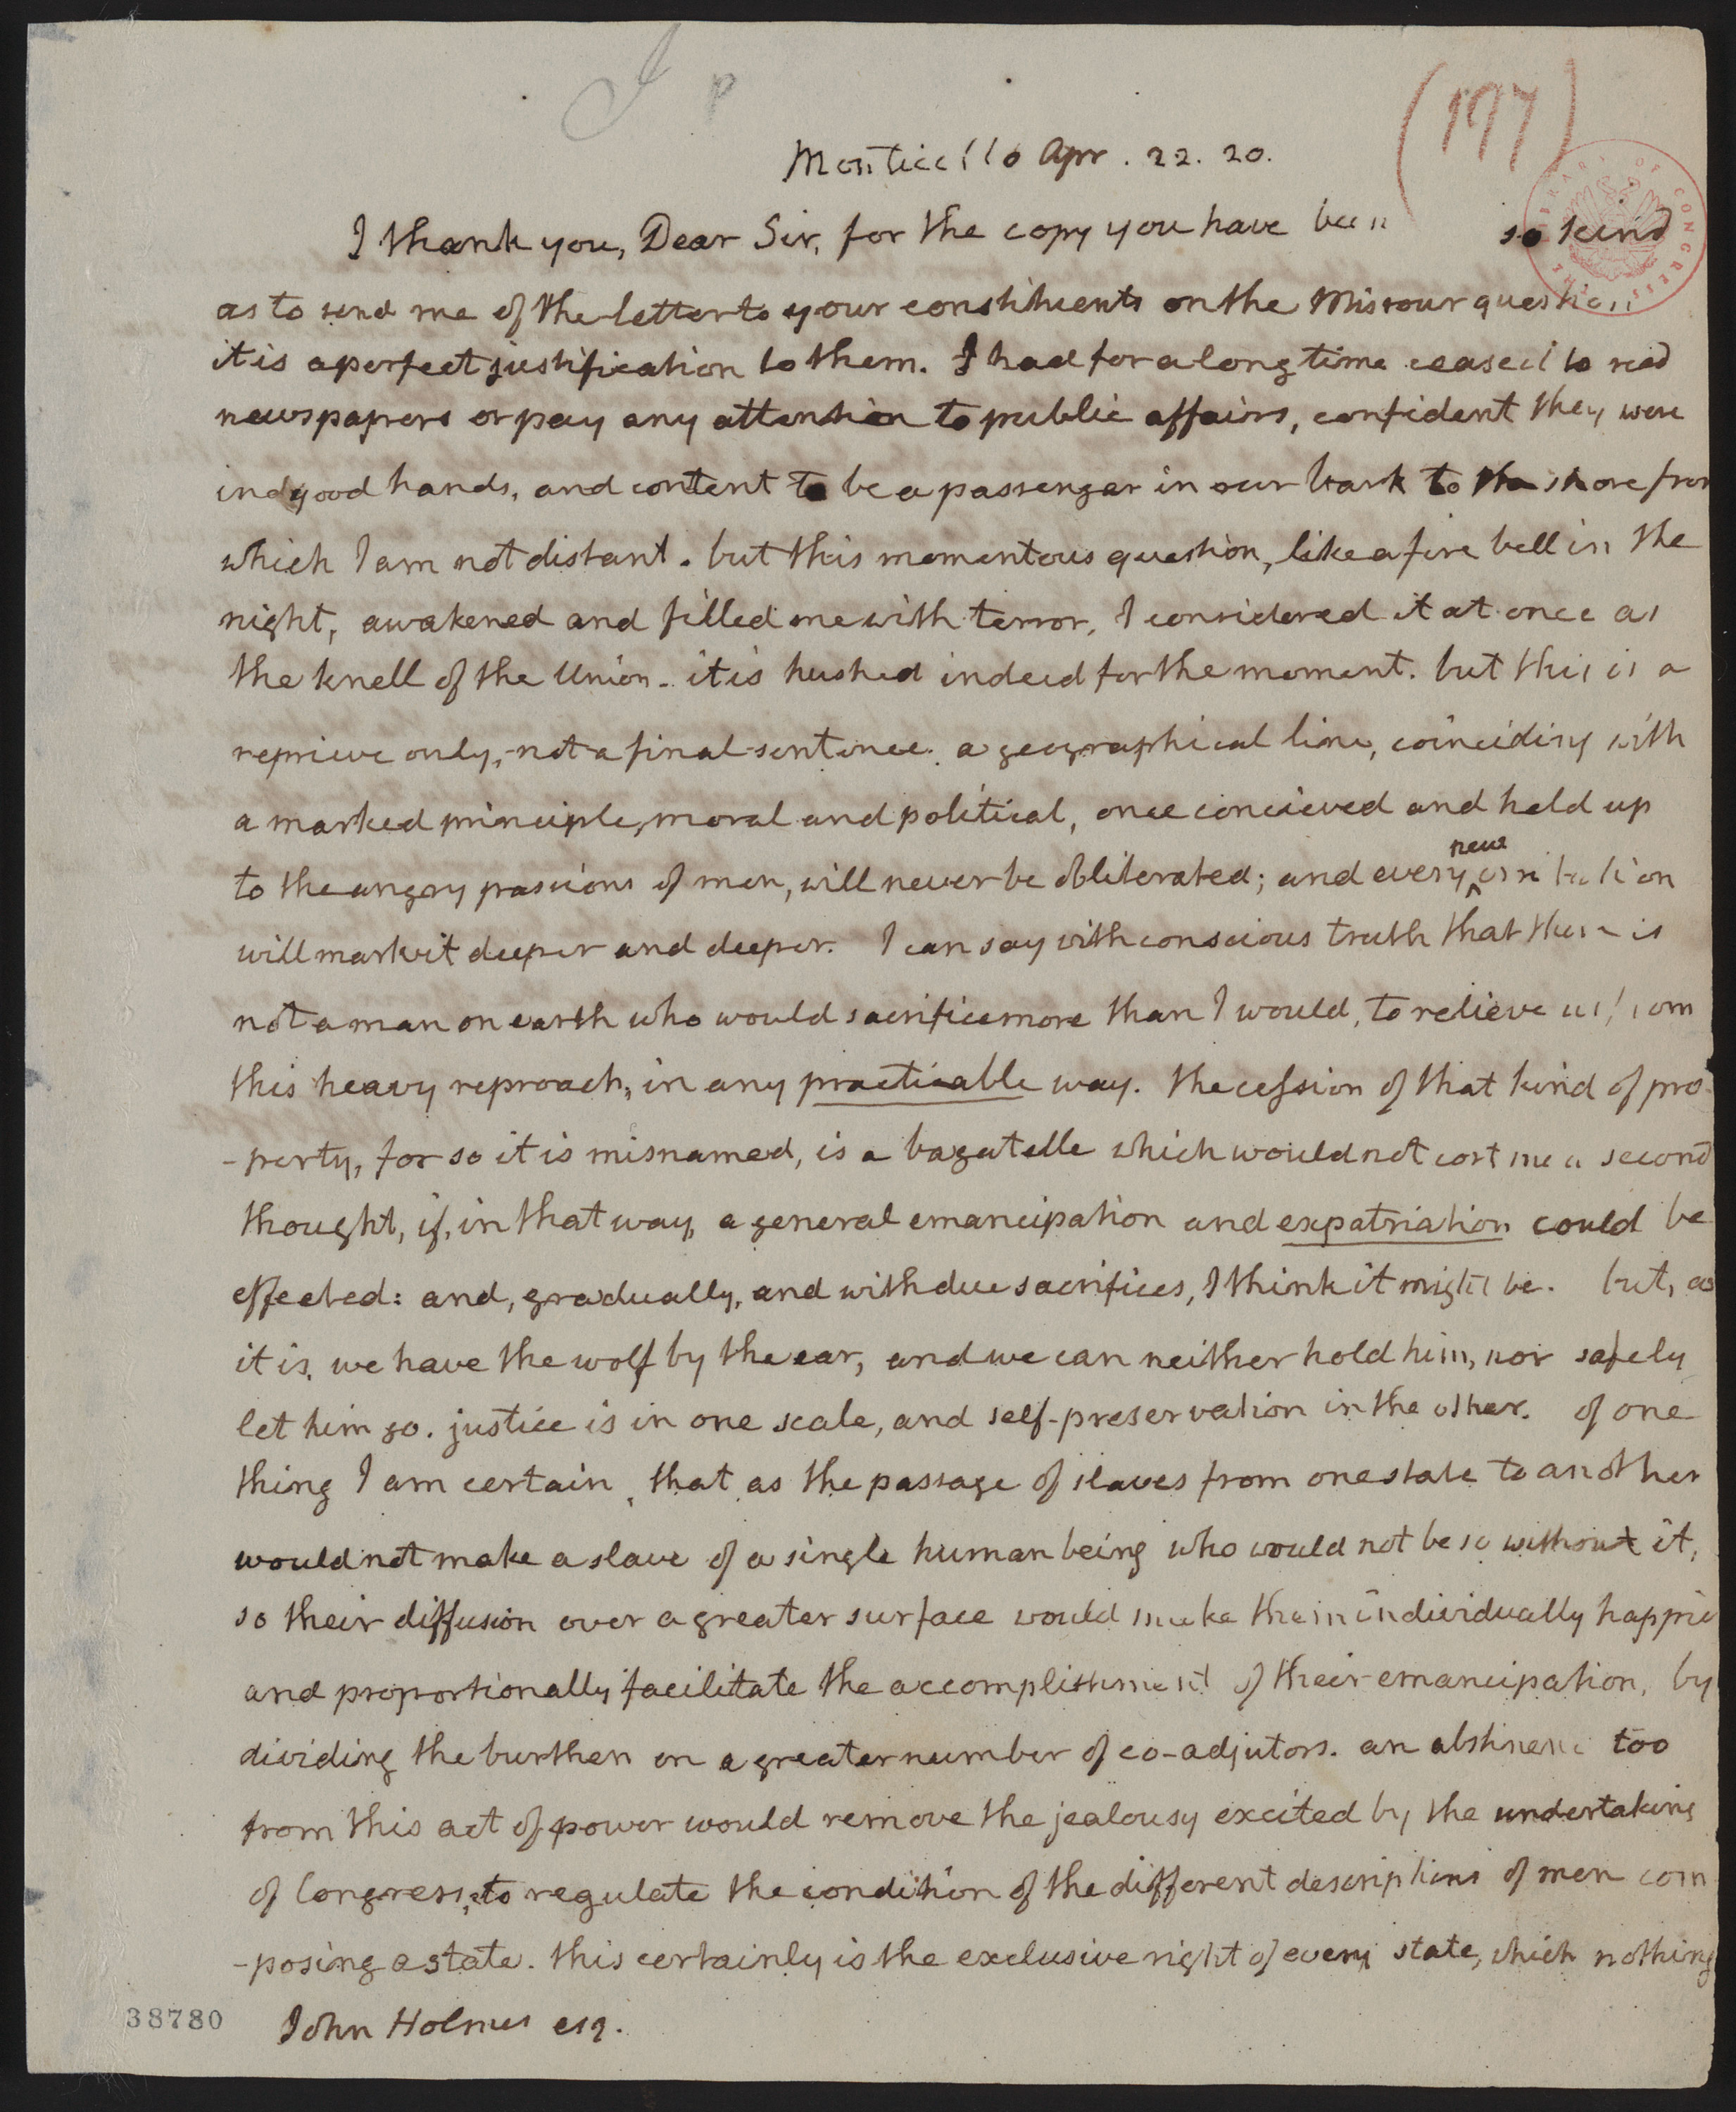 I P
(197)
Monticello Apr. 22. 20.
I thank you, Dear Sir, for the copy you have been so kind
as to send me of the letter to your constituents on the Missouri question
it is a perfect justification to them. I had for a long time ceased to read
newspapers or pay any attention to public affairs, confident they were
in good hands, and content to be a passenger in our bark to the shore from
which I am not distant. but this momentous question, like a fire bell in the
night, awakened and filled me with terror. I considered it at once as
the knell of the Union. it is hushed indeed for the moment. but this is a
reprieve only, not a final sentence. a geographical line, coinciding with
a marked principle, moral and political, once concieved and held up
to the angry passions of men, will never be obliterated; and every new irritation
will mark it deeper and deeper. I can say with conscious truth that there is
not a man on earth who would sacrifice more than I would, to relieve us from
this heavy reproach, in any practicable way. the cession of that kind of pro-
-perty, for so it is misnamed, is a bagatelle which would not cost me a second
thought, if, in that way, a general emancipation and expatriation could be
effected: and, gradually, and with due sacrifices, I think it might be. but, as
it is, we have the wolf by the ear, and we can neither hold him, nor safely
let him go. justice is in one scale, and self-preservation in the other. of one
thing I am certain, that as the passage of slaves from one state to another
would not make a slave of a single human being who would not be so without it,
so their diffusion over a greater surface would make them individually happier
and proportionally facilitate the accomplishment of their emancipation, by
dividing the burthen on a greater number of co-adjutors. an abstinence too
from this act of power would remove the jealousy excited by the undertaking
of Congress, to regulate the condition of the different descriptions of men com
-posing a state. this certainly is the exclusive right of every state, which nothing
38780 John Holmes esq.